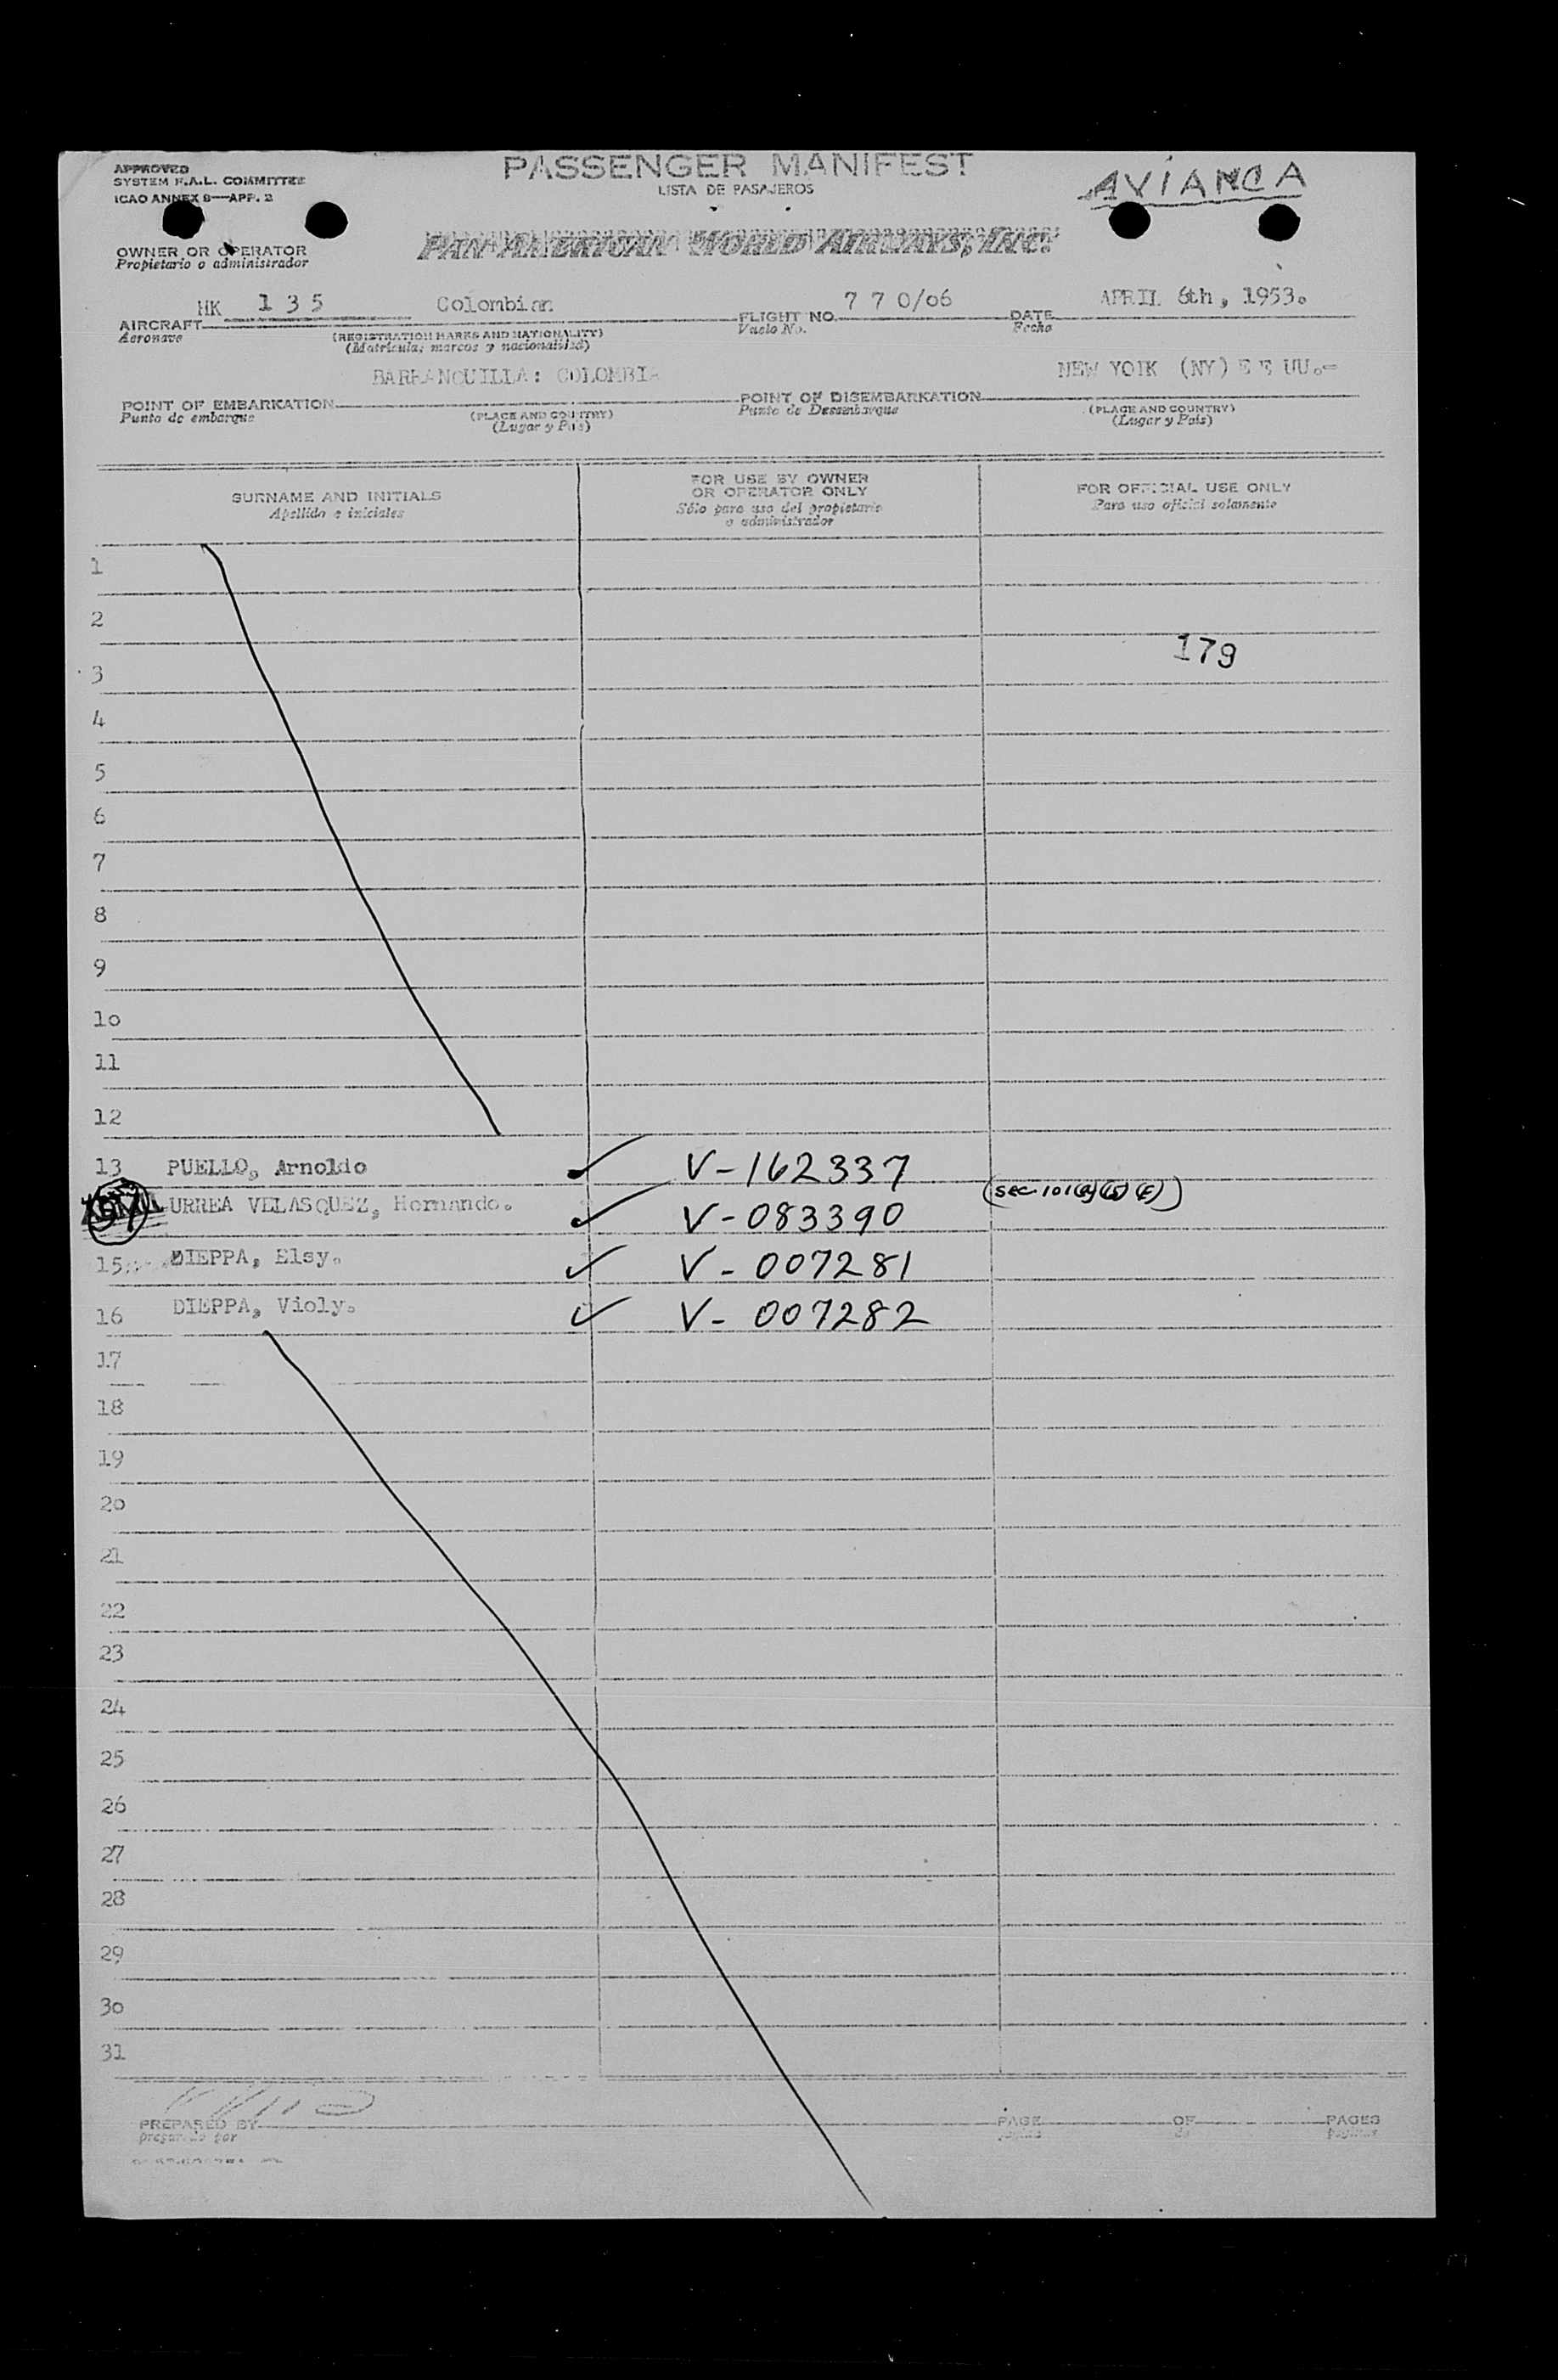 APPROVED
SYSTEM F.A.L. COMMITTEE
ICAO ANNEX 9—APP. 2
PASSENGER MANIFEST
LISTA DE PASAJEROS
AVIANCA
OWNER OR OPERATOR
Propietario o administrador
PAN AMERICAN WORLD AIRWAYS, INC.
HK 135 Colombian 770/06 APRIL 6th, 1953.
AIRCRAFT FLIGHT NO. DATE
Aeronave (REGISTRATION MARKS AND NATIONALITY) Vuelo No. Fecha
(Matrícula; marcos y nacionalidad)
BARRANQUILLA: COLOMBIA NEW YOIK (NY) EE UU.=
POINT OF EMBARKATION POINT OF DISEMBARKATION
Punto de embarque (PLACE AND COUNTRY) Punto de Desembarque (PLACE AND COUNTRY)
(Lugar y País) (Lugar y País)
SURNAME AND INITIALS
Apellido e iniciales
FOR USE BY OWNER
OR OPERATOR ONLY
Sólo para uso del propietario
o administrador
FOR OFFICIAL USE ONLY
Para uso oficial solamente
1
2
179
3
4
5
6
7
8
9
10
11
12
13 PUELLO, Arnoldo V-162337
URREA VELASQUEZ, Hernando. V-083390 (sec. 101(a)(15)(F))
15 DIEPPA, Elsy. V-007281
16 DIEPPA, Violy. V-007282
17
18
19
20
21
22
23
24
25
26
27
28
29
30
31
PREPARED BY PAGE OF PAGES
preparado por página de páginas